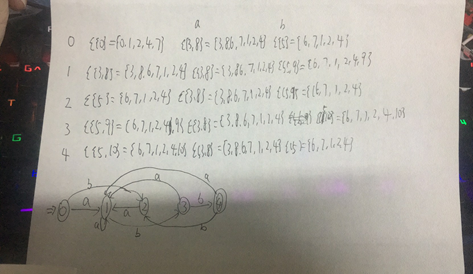 a b
0 ε{0}={0,1,2,4,7} ε{3,8}={3,8,6,7,1,2,4} ε{5}={6,7,1,2,4}
1 ε{3,8}={3,8,6,7,1,2,4} ε{3,8}={3,8,6,7,1,2,4} ε{5,9}={6,7,1,2,4,9}
2 ε{5}={6,7,1,2,4} ε{3,8}={3,8,6,7,1,2,4} ={6,7,1,2,4}
3 ε{5,9}={6,7,1,2,4,9} ε{3,8}={3,8,6,7,1,2,4} ={6,7,1,2,4,10}
4 ε{5,10}={6,7,1,2,4,10} ε{3,8}={3,8,6,7,1,2,4} ε{5}={6,7,1,2,4}
b a a
⇒ 0 a 1 a 2 3 b 4
a b b